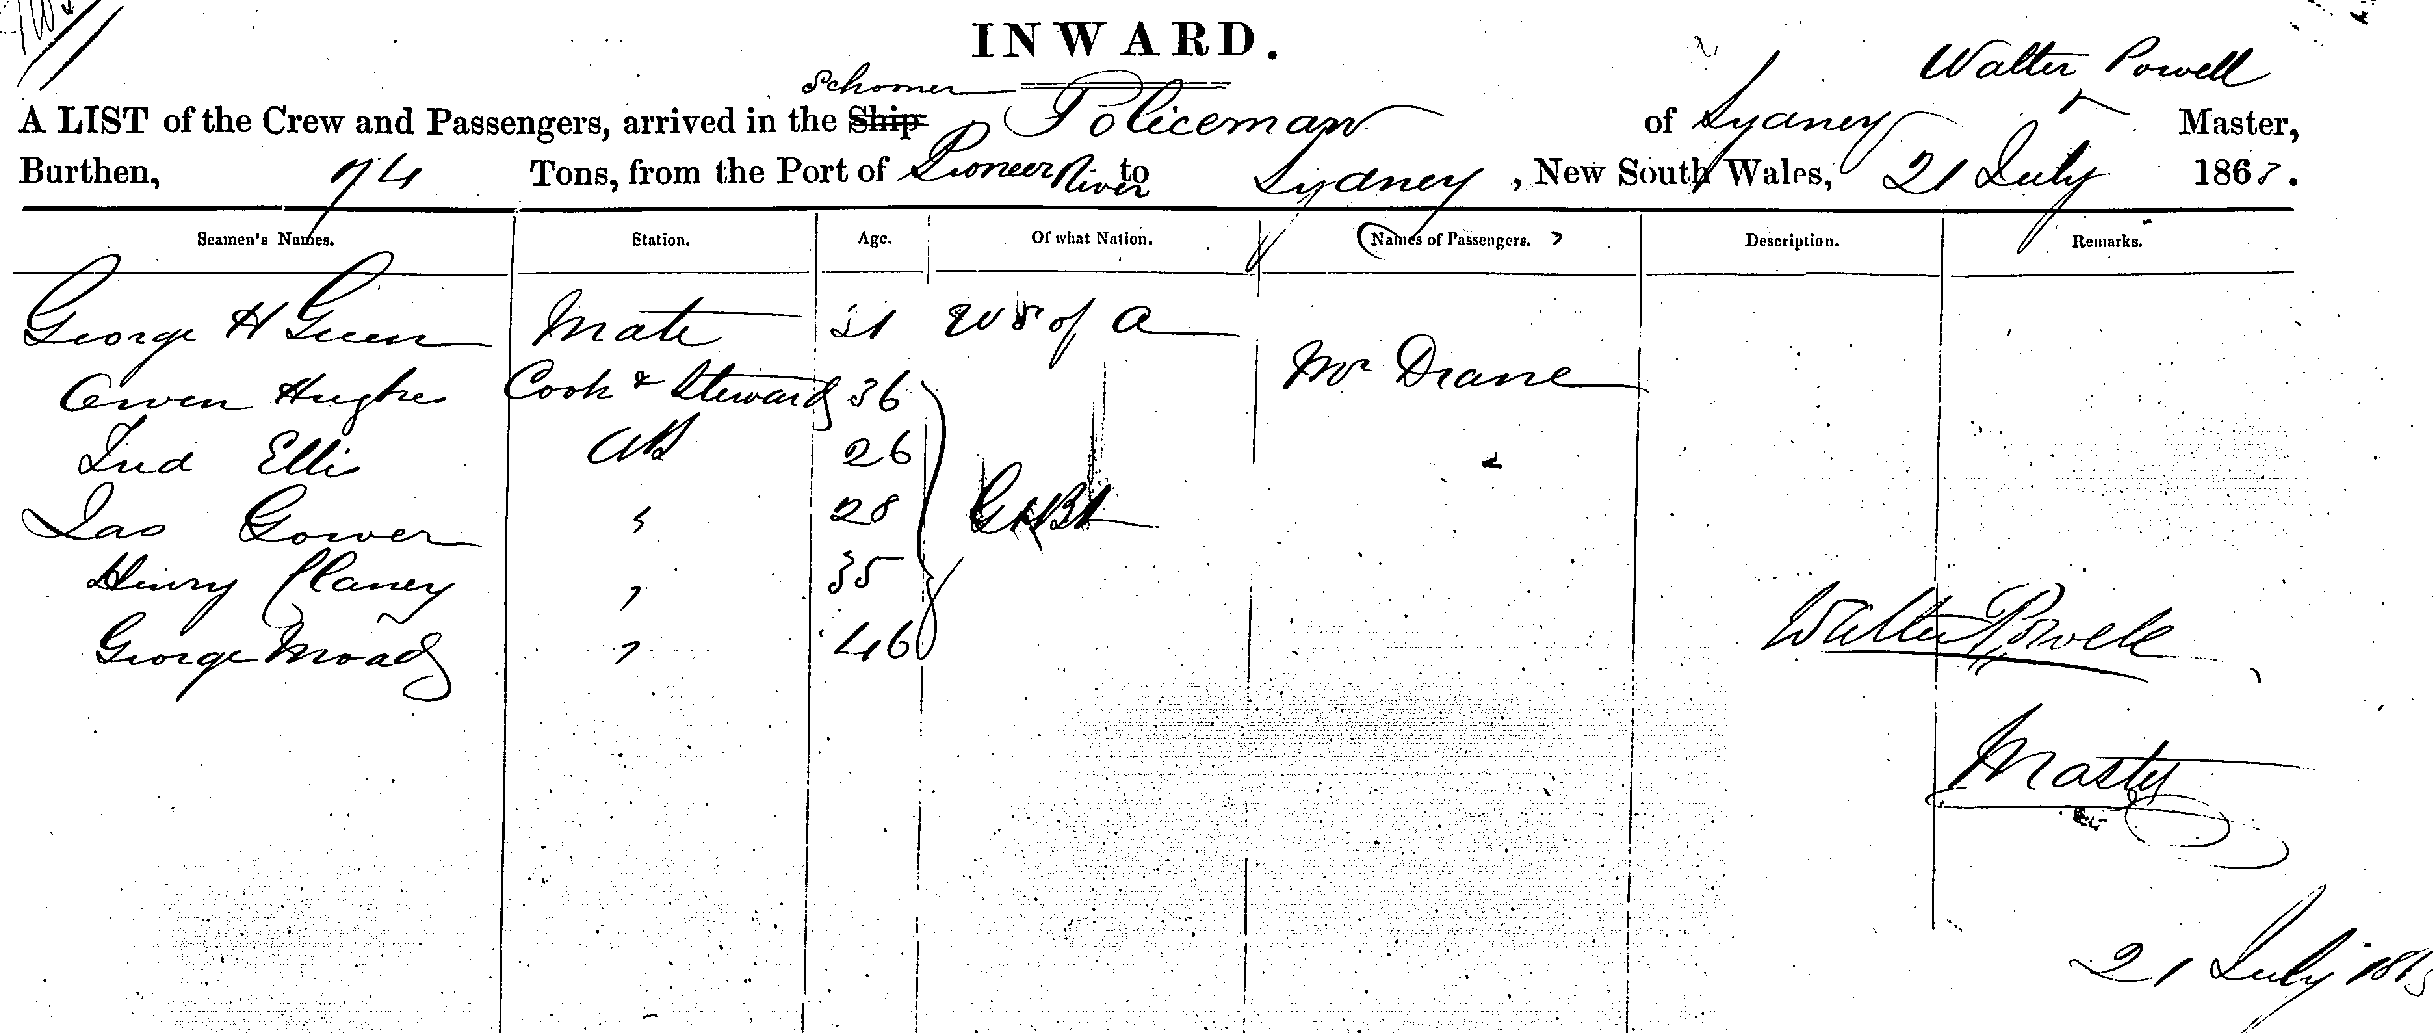 INWARD.
Schooner Walter Powell
A LIST of the Crew and Passengers, arrived in the Ship Policeman of Sydney Master,
Burthen, 74 Tons, from the Port of Pioneer River to Sydney, New South Wales, 21 July 186
Seamen's Names. Station. Age. Of what Nation. Names of Passengers. Description. Remarks.
George H Green Mate 31 U S of A
Owen Hughes Cook & Steward 36 Mr Drane
Fred Ellis AB 26
Jas Gower " 28 Gt Bt
Henry Claney " 35
George Moady " 46
Walter Powell
Master
21 July 186